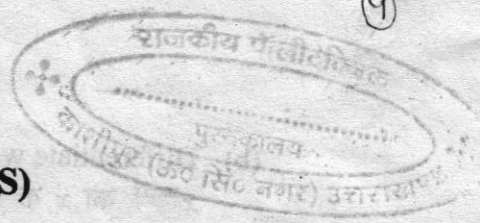 १
राजकीय पॉलीटेक्निक
पुस्तकालय
काशीपुर (ऊ० सिं० नगर) उत्तराखण्ड
S)